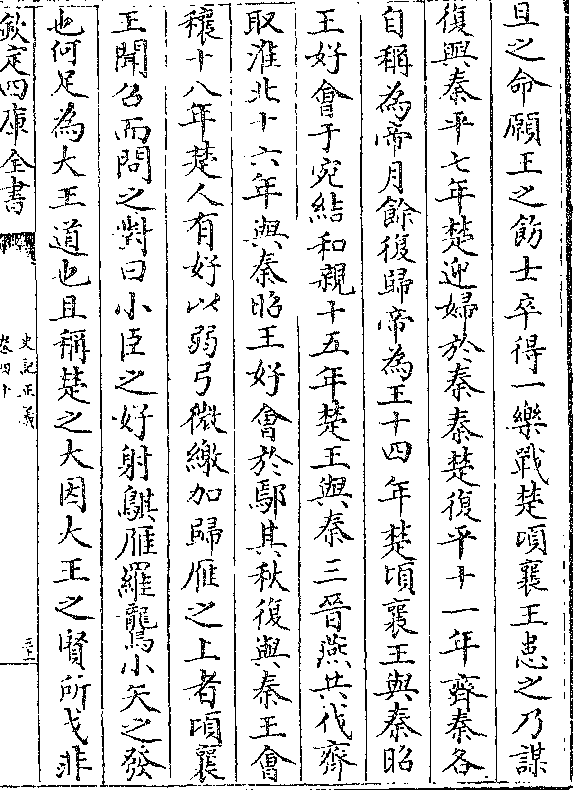 旦之命願王之飭士卒得一樂戰楚頃襄王患之乃謀
復與秦平七年楚迎婦於秦秦楚復平十一年齊秦各
自稱為帝月餘復歸帝為王十四年楚頃襄王與秦昭
王好會于宛結和親十五年楚王與秦三晉燕共伐齊
取淮北十六年與秦昭王好會於鄢其秋復與秦王會
穰十八年楚人有好以弱弓微繳加歸雁之上者頃襄
王聞召而問之對曰小臣之好射鶀雁羅鸗小矢之發
也何足為大王道也且稱楚之大因大王之賢所弋非
欽定四庫全書
史記正義
卷四十